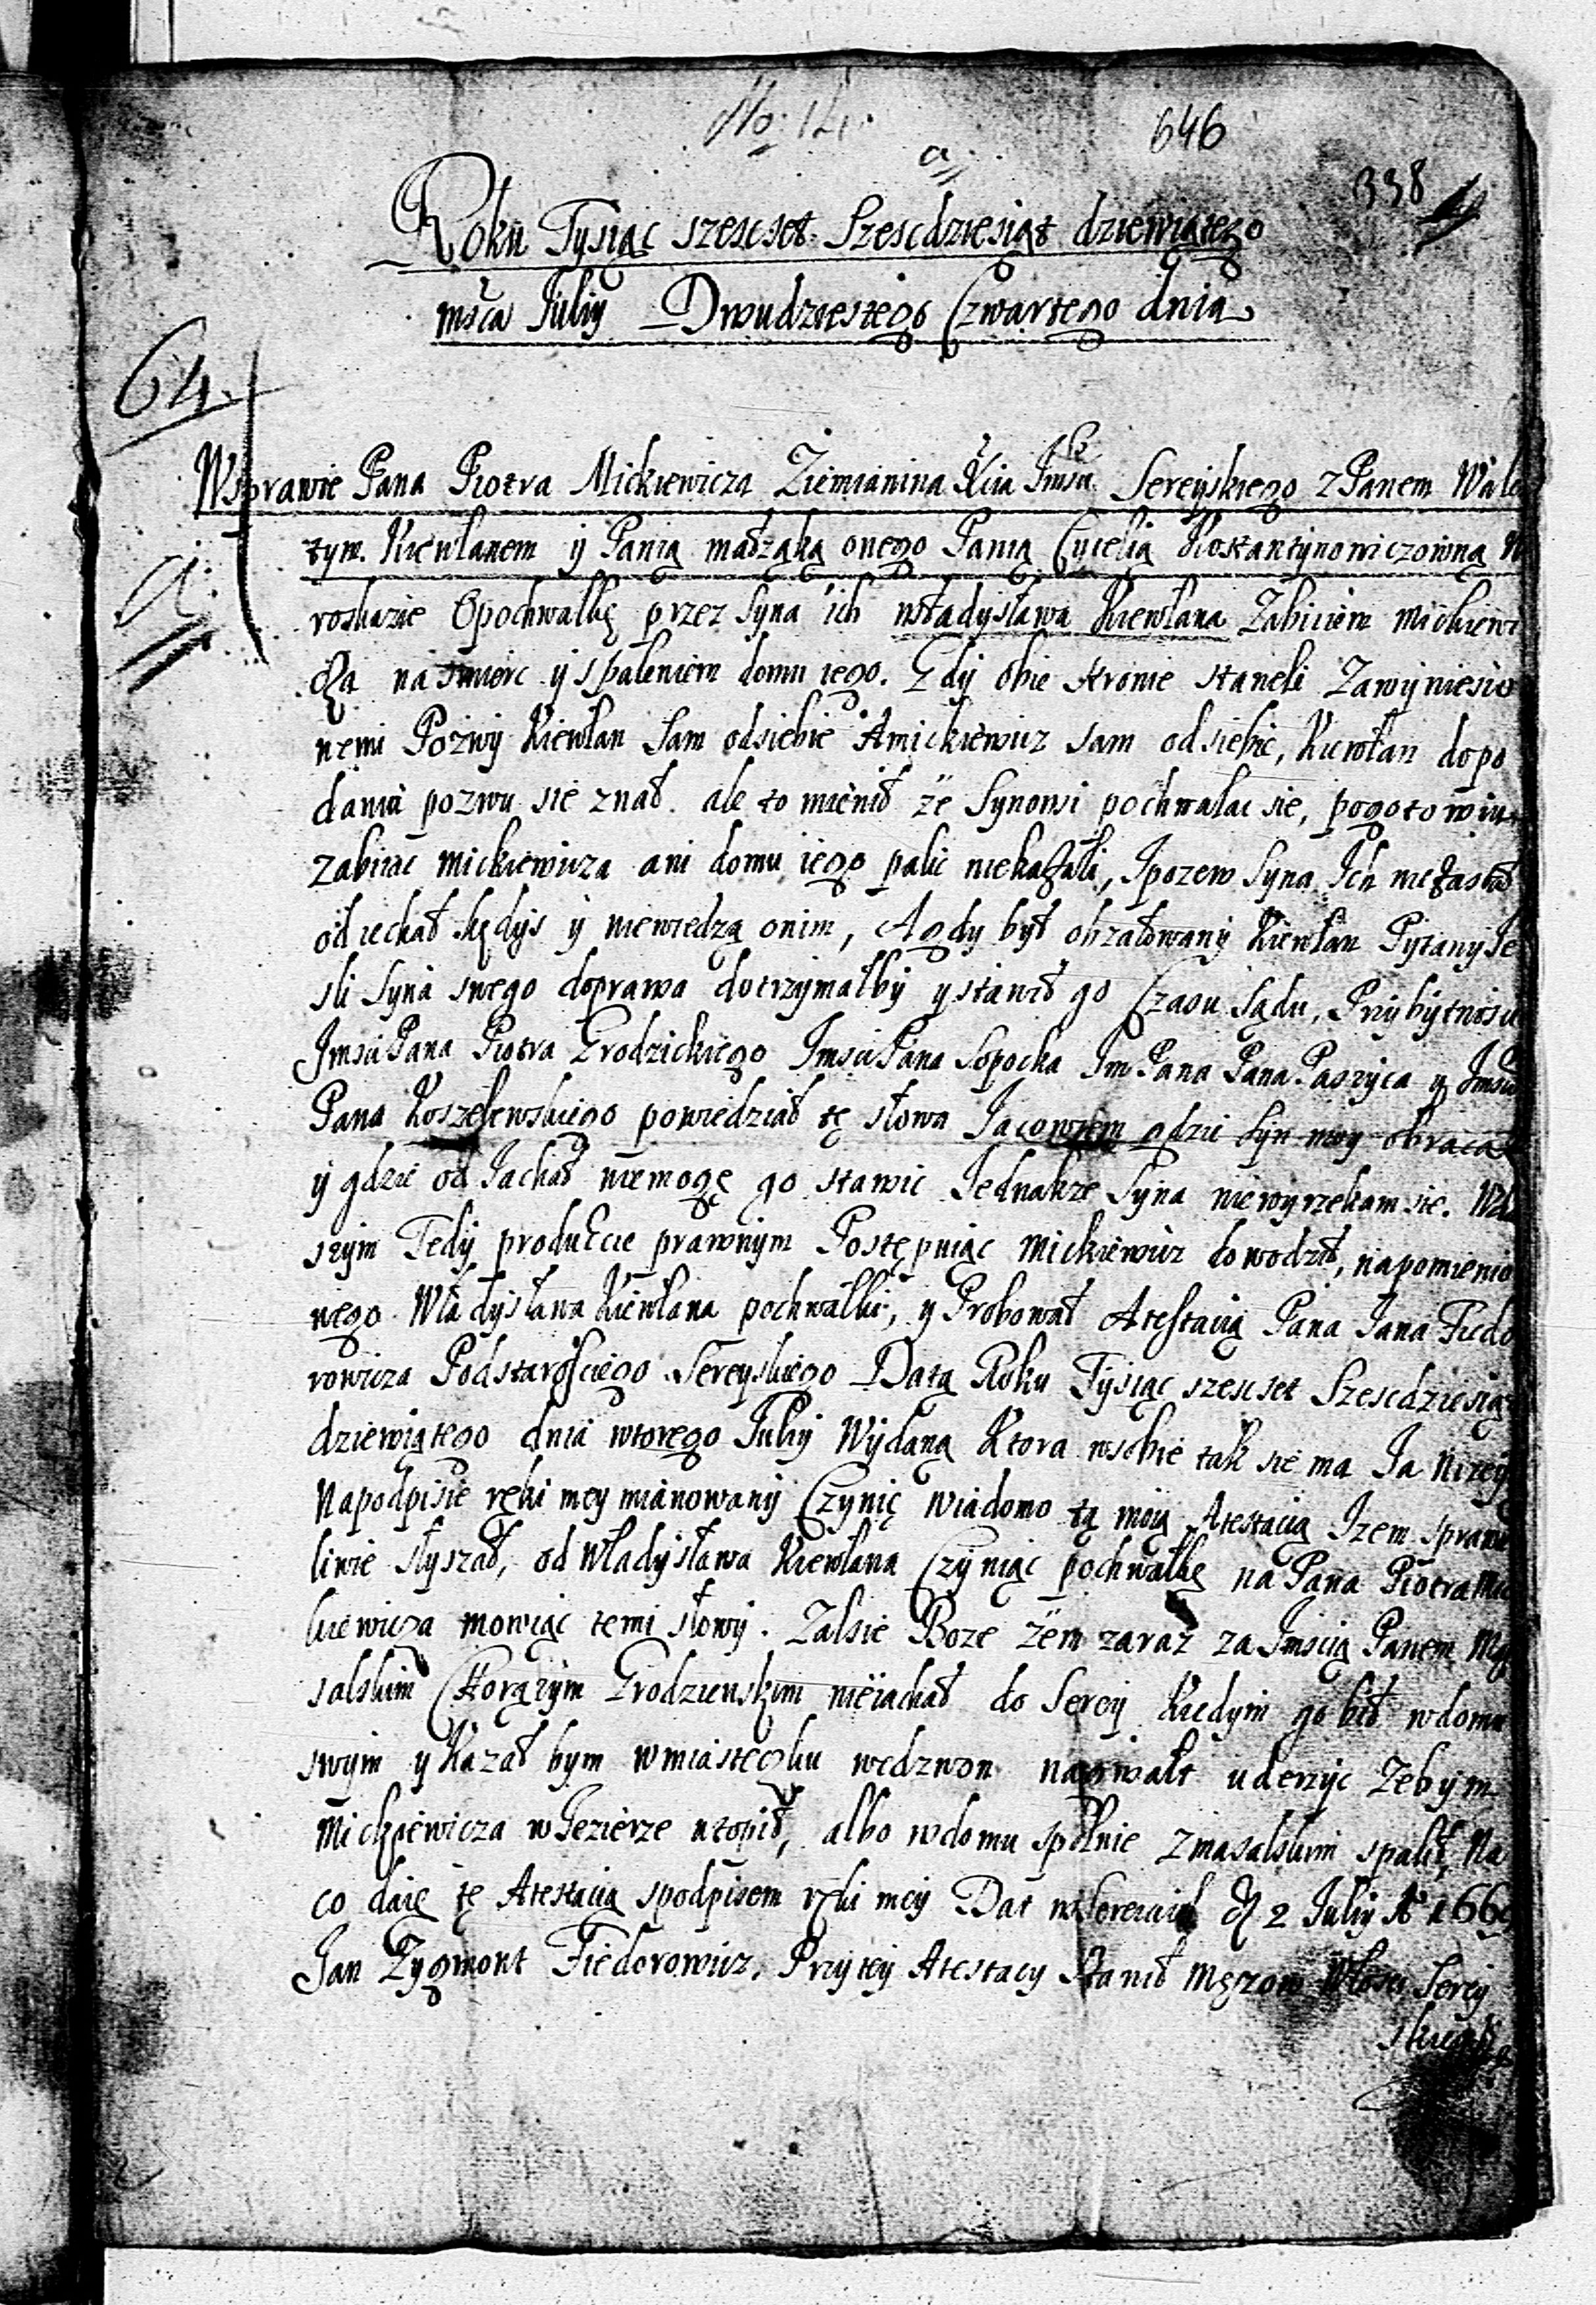 No: 14.
646
a
338
Roku Tysiąc szescset Szescdziesiąt dziewiątego
msca Julij Dwudziestego Czwartego dnia
64.
a.
Wsprawie Pana Piotra Mickiewicza Ziemianina Xcia Jmści Sereyskiego z Panem Walen
tym Kiewłanem y Panią małząką onego Panią Cycelią Kostantynowiczowną
roskazie Opochwałkę przez Syna ich władysława Kiewłana Zabiciem Mickiewi
cza na smierc y spaleniem domu iego. Gdy obie stronie staneli Zawyniesio
nemi Pozwy Kiewłan sam odsiebie Amickiewicz sam odsiebie, Kiewłan dopo
dania pozwu sie znał. ale to mienił że Synowi pochwalac sie, pogotowiu
zabiiac mickiewicza ani domu iego palic niekazali, Ipozew Syna Ich niezastał
odiechał kędys y niewiedzą onim, Agdy był obzałowany Kiewłan Pytany Ie
sli Syna swego doprawa dotrzymałby ystawił go Czasu Sądu, Przybytnosci
Jmsci Pana Piotra Grodzickiego Jmsci Pana Sopocka Jm Pana Pana Paszyca y Jmsci
Pana Koszelewskiego powiedział tę słowa Jacowiem gdzie Syn moy obracał
y gdzie od Jachał niemogę go stawic Jednakze Syna niewyrzekam sie.
szym Tedy produkcie prawnym Postępuiąc mickiewicz dowodził, napomienio
nego Władysława Kiewłana pochwałki, y Probował Atestacią Pana Jana Fiedo
rowicza Podstarosciego Sereyskiego Datą Roku Tysiąc szescset Szescdziesiąt
dziewiątego dnia wtorego Julij Wydaną Ktora wsobie tak sie ma Ja nizey
Napodpisie ręki mey mianowany Czynię wiadomo tą moią Atestacią Izem sprawied
liwie słyszał, od Władysława Kiewłana Czyniąc pochwałkę na Pana Piotra Mic
kiewicza mowiąc temi słowy. Zalsie Boze zëm zaraz za Jmscią Panem Ma
salskim Chorązym Grodzienskim nieiachał do Serey Kiedym go bił wdomu
swym y Kazał bym wmiasteczku wedzwon nagwałt uderzyc Zebym
Mickiewicza wJezierze utopił, albo wdomu społnie zmasalskim spalił, Na
co daię tę Atestacią spodpisem ręki mey Dat wSereiach D 2 Julij Ao 1669
Jan Zygmont Fiedorowicz. Przytey Atestacy Stanił Męzow Włosci Serey
skiey